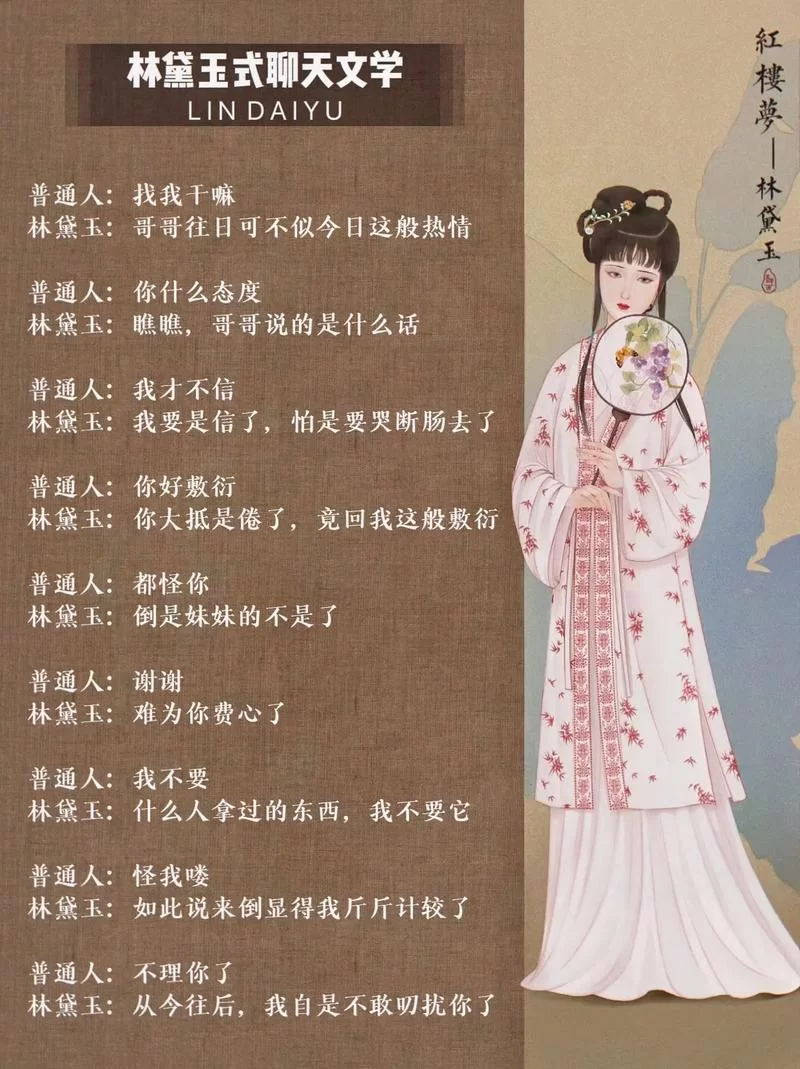 林黛玉式聊天文学
LIN DAIYU
普通人：找我干嘛
林黛玉：哥哥往日可不似今日这般热情
普通人：你什么态度
林黛玉：瞧瞧，哥哥说的是什么话
普通人：我才不信
林黛玉：我要是信了，怕是要哭断肠去了
普通人：你好敷衍
林黛玉：你大抵是倦了，竟回我这般敷衍
普通人：都怪你
林黛玉：倒是妹妹的不是了
普通人：谢谢
林黛玉：难为你费心了
普通人：我不要
林黛玉：什么人拿过的东西，我不要它
普通人：怪我喽
林黛玉：如此说来倒显得我斤斤计较了
普通人：不理你了
林黛玉：从今往后，我自是不敢叨扰你了
紅樓夢—林黛玉